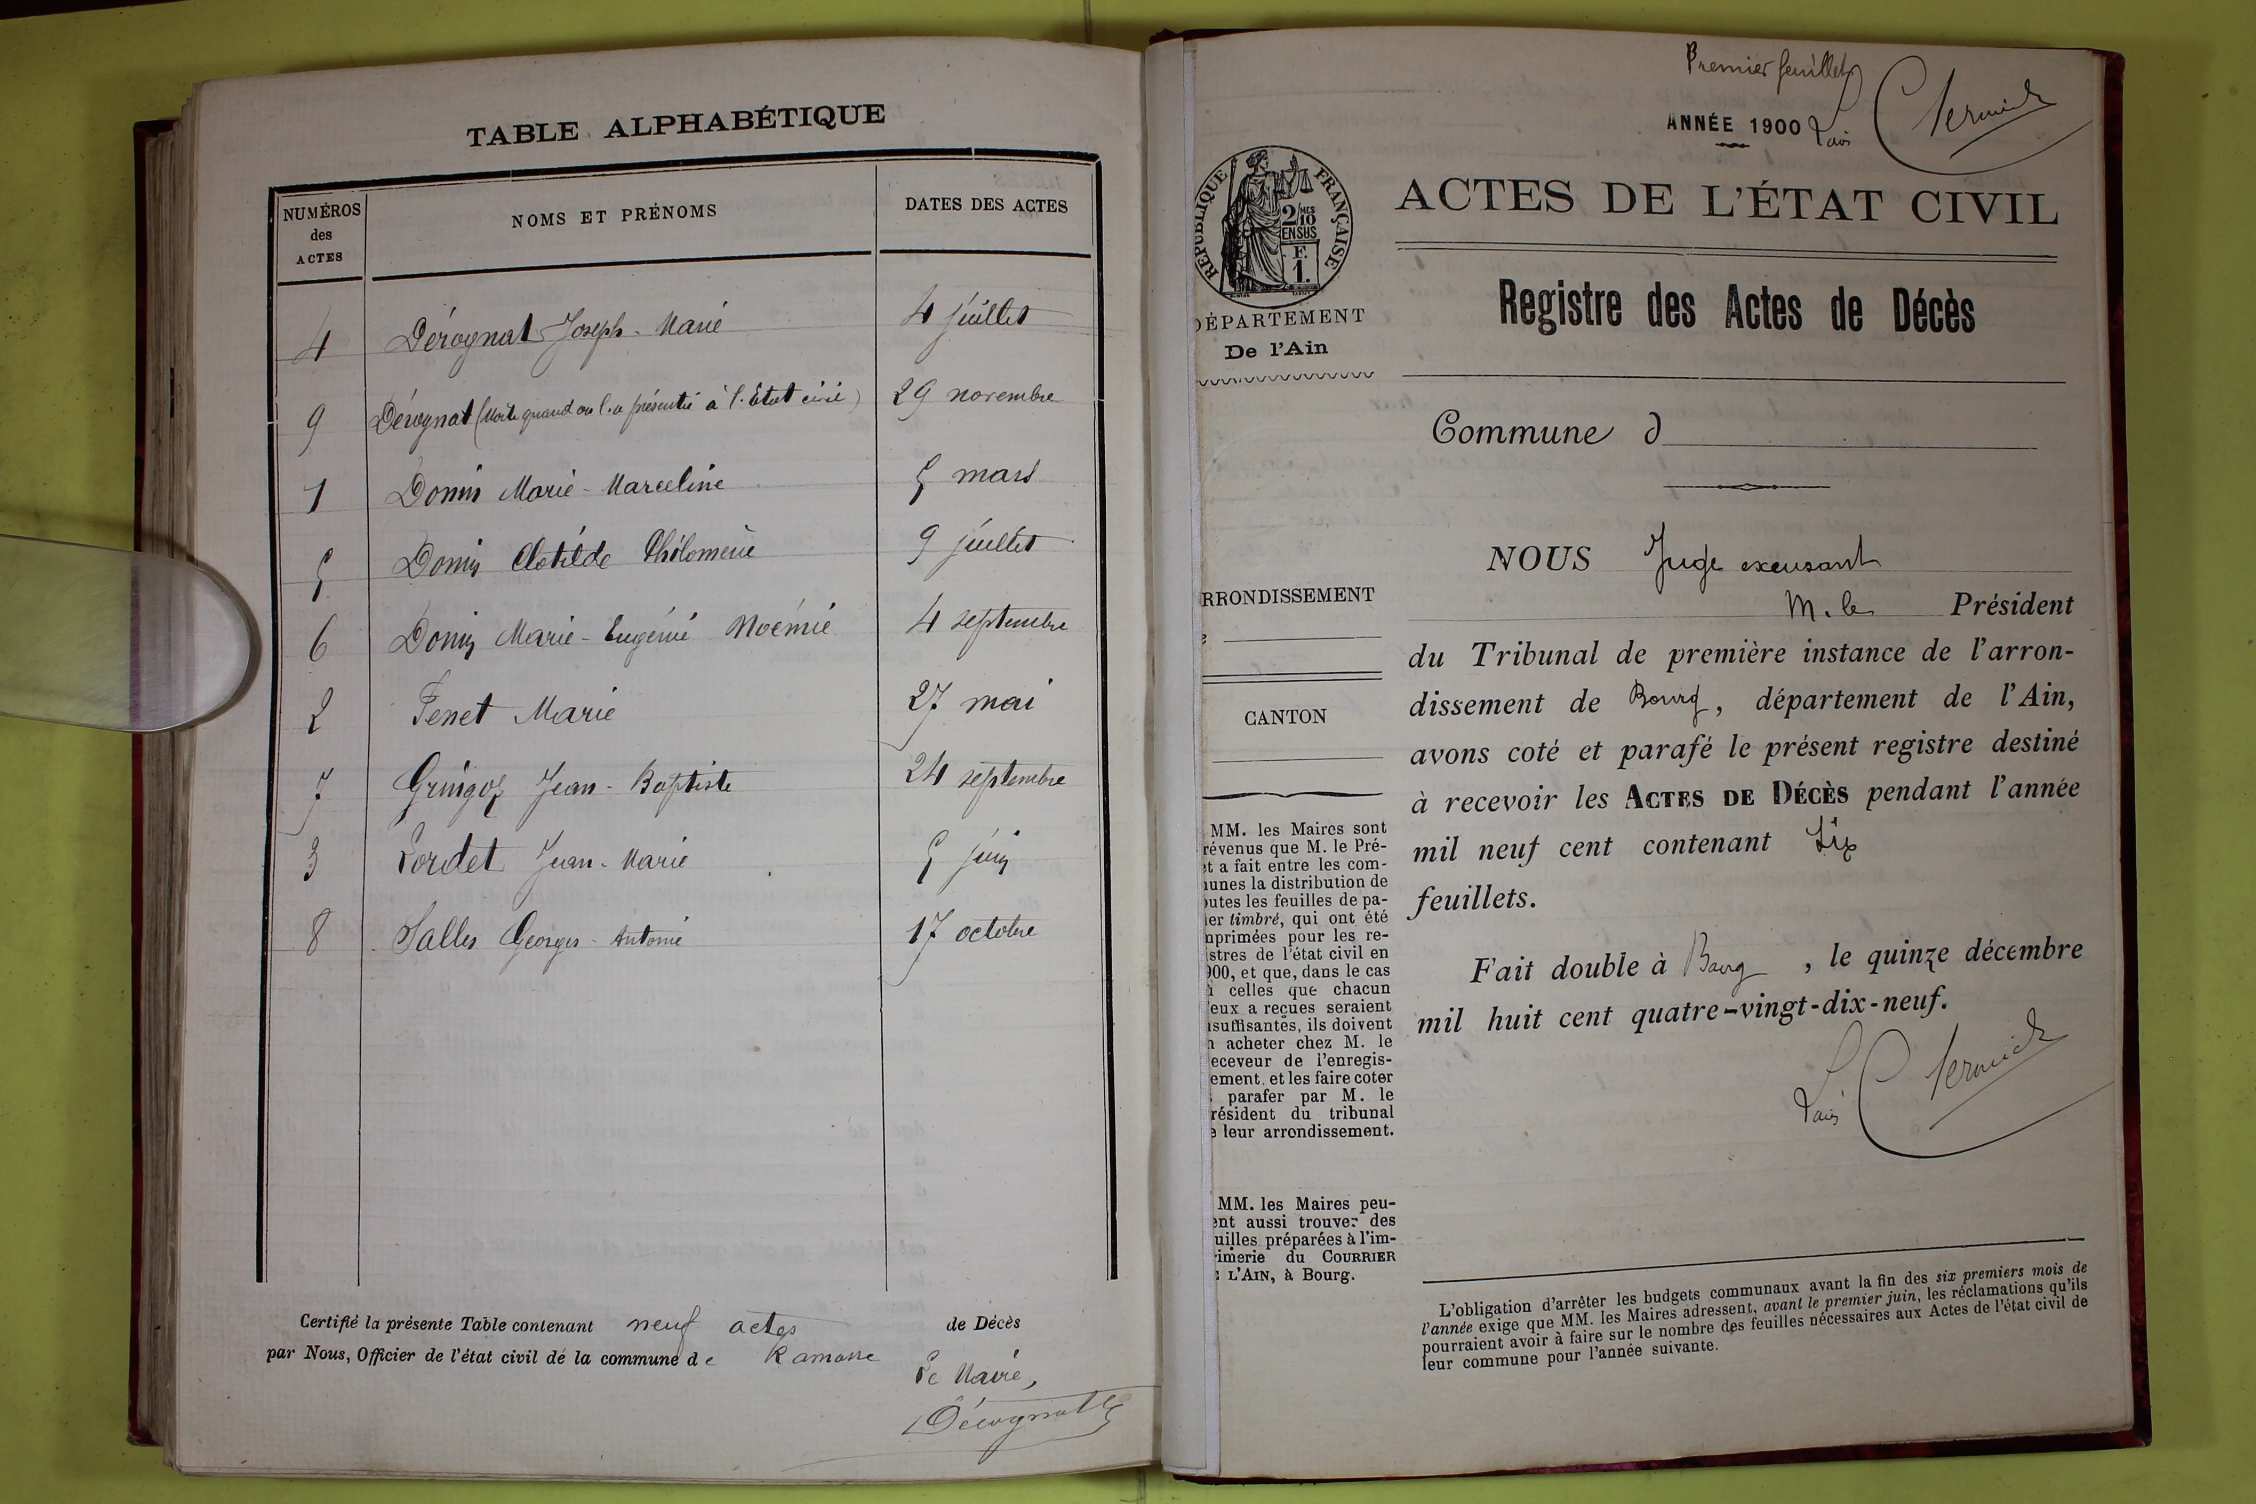 TABLE ALPHABÉTIQUE
NUMÉROS des ACTES
NOMS ET PRÉNOMS
DATES DES ACTES
4 Dérognat Joseph-Marie 4 juillet
9 Dérognat (Morte quand on l'a présentée à l'État civil) 29 novembre
1 Domin Marie-Marceline 5 mars
5 Domin Clotilde Philomène 9 juillet
6 Domin Marie-Eugénie Noémie 4 septembre
2 Fenet Marie 27 mai
7 Gringoz Jean-Baptiste 24 septembre
3 Lordet Jean-Marie 5 juin
8 Salles Georges-Antoine 17 octobre
Certifié la présente Table contenant neuf actes de Décès
par Nous, Officier de l'état civil de la commune de Ramasse
Le Maire,
Dérognat
Premier feuillet
ANNÉE 1900
RÉPUBLIQUE FRANÇAISE
2/10 MES
EN SUS
F.
1.
ACTES DE L'ÉTAT CIVIL
DÉPARTEMENT
De l'Ain
Registre des Actes de Décès
Commune d
NOUS Juge excusant
M. le Président
du Tribunal de première instance de l'arron-
dissement de Bourg, département de l'Ain,
avons coté et parafé le présent registre destiné
à recevoir les ACTES DE DÉCÈS pendant l'année
mil neuf cent contenant Six
feuillets.
Fait double à Bourg, le quinze décembre
mil huit cent quatre-vingt-dix-neuf.
RRONDISSEMENT
CANTON
MM. les Maires sont
révenus que M. le Pré-
et a fait entre les com-
unes la distribution de
outes les feuilles de pa-
ier timbré, qui ont été
mprimées pour les re-
istres de l'état civil en
900, et que, dans le cas
ù celles que chacun
'eux a reçues seraient
nsuffisantes, ils doivent
n acheter chez M. le
eceveur de l'enregis-
ement. et les faire coter
parafer par M. le
résident du tribunal
e leur arrondissement.
MM. les Maires peu-
ent aussi trouver des
uilles préparées à l'im-
rimerie du COURRIER
E L'AIN, à Bourg.
L'obligation d'arrêter les budgets communaux avant la fin des six premiers mois de
l'année exige que MM. les Maires adressent, avant le premier juin, les réclamations qu'ils
pourraient avoir à faire sur le nombre des feuilles nécessaires aux Actes de l'état civil de
leur commune pour l'année suivante.